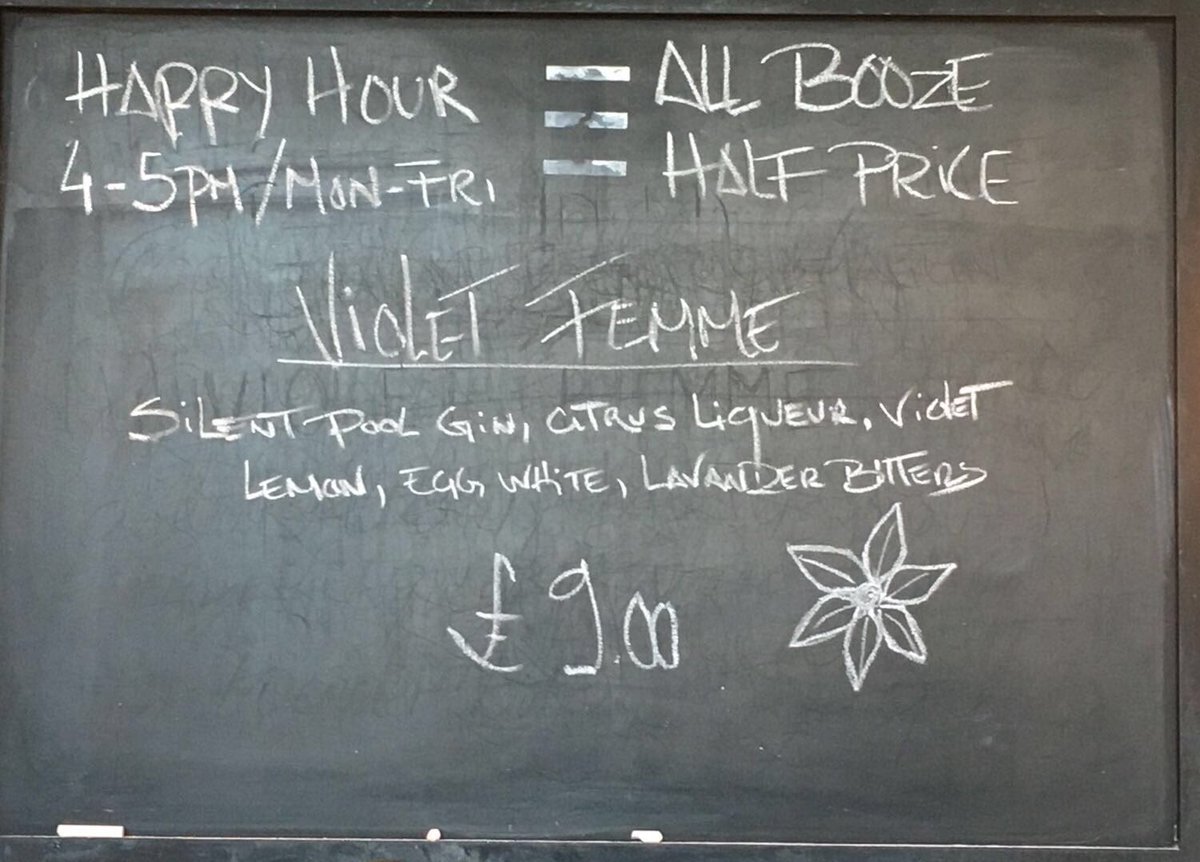 HAPPY HOUR ALL BOOZE
4-5PM/MON-FRI HALF PRICE
VIOLET FEMME
SILENT POOL GIN, CITRUS LIQUEUR, VIOLET
LEMON, EGG WHITE, LAVANDER BITTERS
£9.00